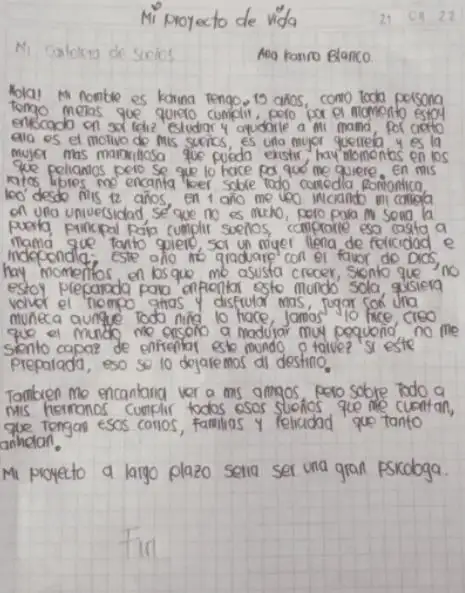 Mi proyecto de vida
21 09 22
Mi cartelera de sueños
Ana Karina Blanco
Hola! Mi nombre es Karina Tengo 15 años, como toda persona
Tengo metas que quiero cumplir, pero por el momento estoy
enfocada en ser feliz estudiar y ayudarle a mi mamá, por cierto
ella es el motivo de mis sueños, es una mujer guerrera y es la
mujer mas maravillosa que pueda existir, hay momentos en los
que peliamos pero se que lo hace por que me quiere. En mis
ratos libres me encanta leer sobre todo comedia Romantica,
leo desde mis 12 años, en 1 año me veo iniciando mi carrera
en una universidad, se que no es mucho, pero para mi sería la
puerta principal para cumplir sueños, comprarle esa casita a
mamá que tanto quiere, ser un mujer llena de felicidad e
independia, Este año me graduare con el favor de Dios,
hay momentos en los que me asusta crecer, siento que no
estoy preparada para enfrentar este mundo sola, quisiera
volver el tiempo atras y disfrutar mas, jugar con una
muñeca aunque toda niña lo hace, jamas lo hice, creo
que el mundo me enseño a madurar muy pequeña no me
siento capaz de enfrentar este mundo o talvez si este
preparada, eso se lo dejaremos al destino.
Tambien me encantaria ver a mis amigos, pero sobre todo a
mis hermanos cumplir todos esos sueños que me cuentan,
que tengan esos carros, familias y felicidad que tanto
anhelan.
Mi proyecto a largo plazo seria ser una gran Psicologa.
Fin